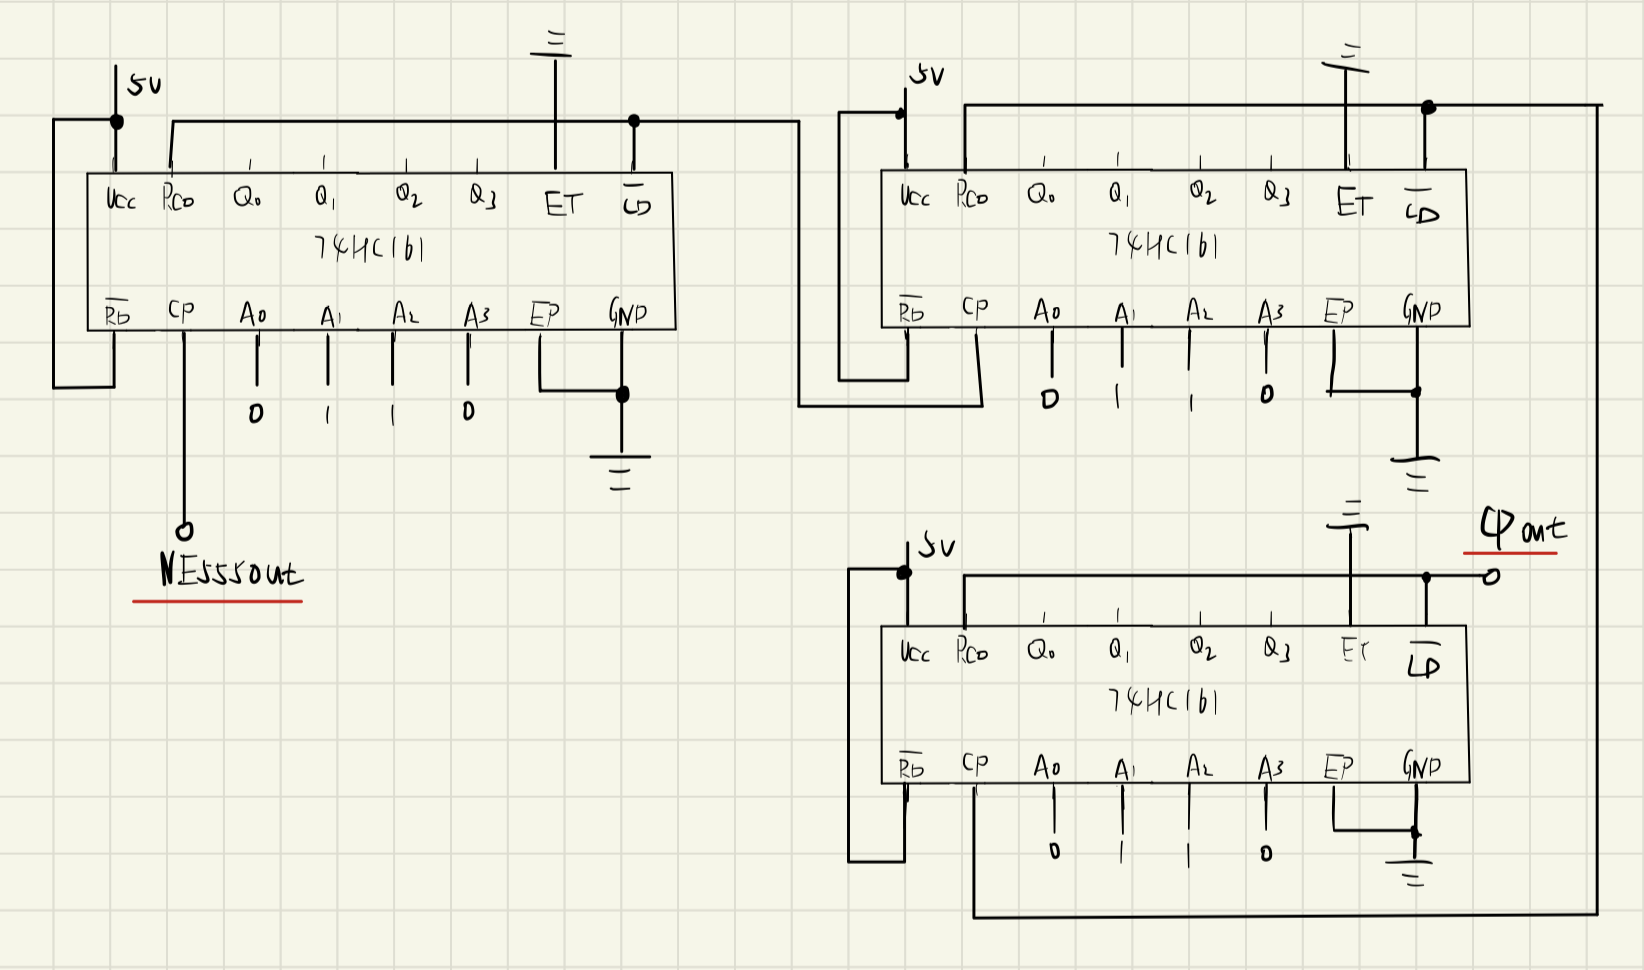 5V
Vcc RCO Q0 Q1 Q2 Q3 ET LD
74HC161
RD CP A0 A1 A2 A3 EP GND
0 1 1 0
NE555out
5V
Vcc RCO Q0 Q1 Q2 Q3 ET LD
74HC161
RD CP A0 A1 A2 A3 EP GND
0 1 1 0
φout
5V
Vcc RCO Q0 Q1 Q2 Q3 ET LD
74HC161
RD CP A0 A1 A2 A3 EP GND
0 1 1 0